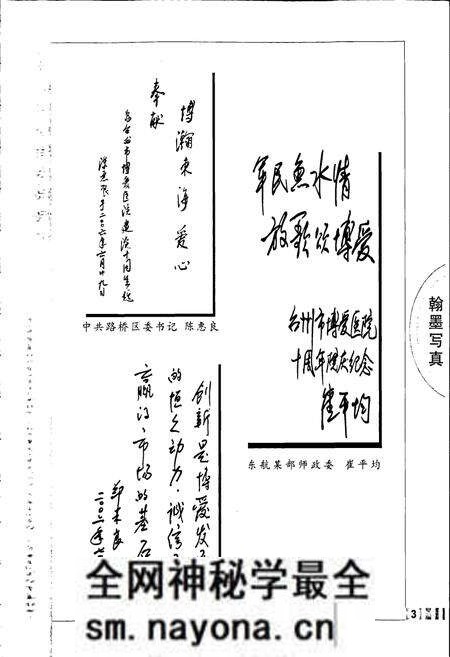 博瀚东海爱心
奉献
为台州市博爱医院建院十周年题
陈惠良
中共路桥区委书记 陈惠良
军民鱼水情
放歌颂博爱
台州市博爱医院
十周年院庆纪念
崔平均
东航某部师政委 崔平均
创新是博爱发
的恒久动力·诚信
赢得市场的基石
翰墨写真
3
全网神秘学最全
sm.nayona.cn